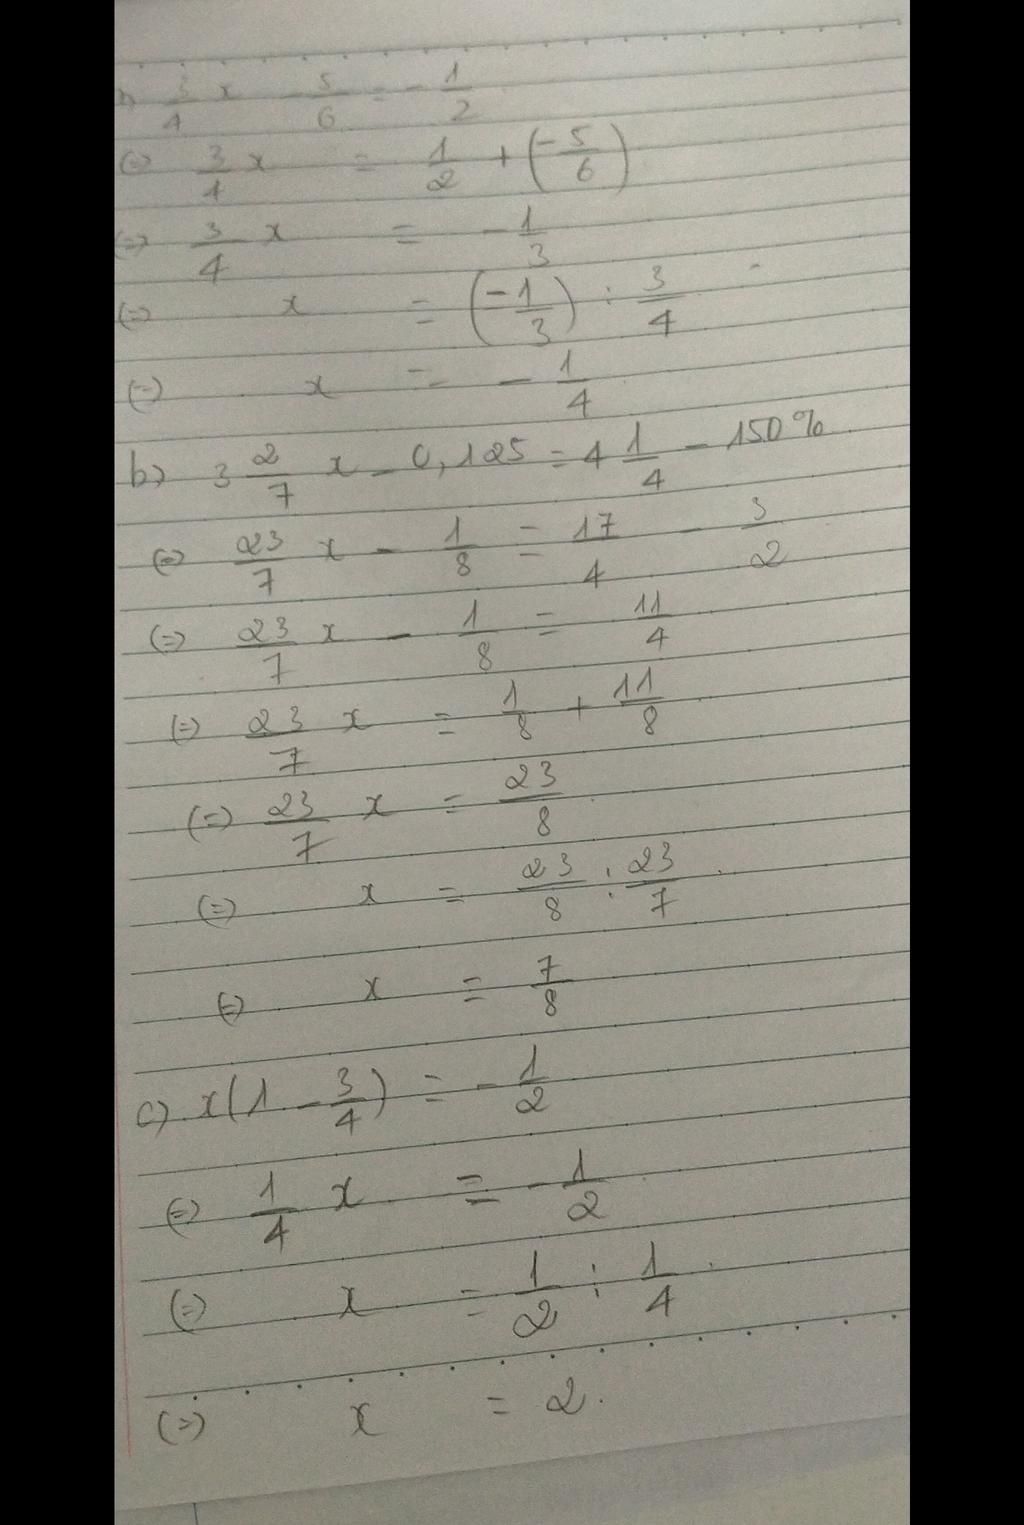 3/4 x - 5/6 = - 1/2
(=) 3/4 x = 1/2 + (-5/6)
(=) 3/4 x = - 1/3
(=) x = (-1/3) : 3/4
(=) x = - 1/4
b) 3 2/7 x - 0,125 = 4 1/4 - 150%
(=) 23/7 x - 1/8 = 17/4 - 3/2
(=) 23/7 x - 1/8 = 11/4
(=) 23/7 x = 1/8 + 11/8
(=) 23/7 x = 23/8
(=) x = 23/8 : 23/7
(=) x = 7/8
c) x(1 - 3/4) = - 1/2
(=) 1/4 x = - 1/2
(=) x = 1/2 : 1/4
(=) x = 2.